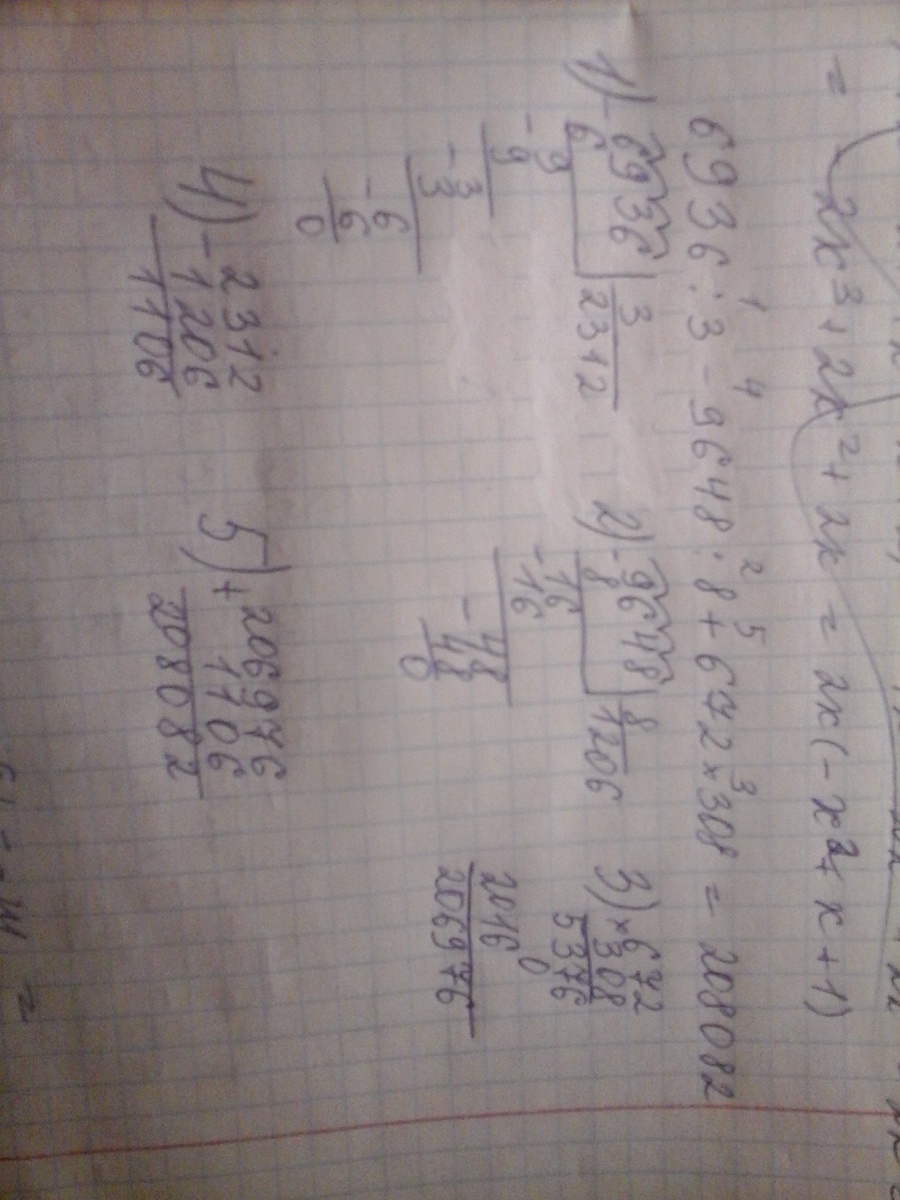 = 2x³ + 2x² + 2x = 2x(-x² + x + 1)
1 4 2 5 3
6936 : 3 - 9648 : 8 + 672 × 308 = 208082
1) 6936 | 3
- 6 2312
9
- 9
3
- 3
6
- 6
0
2) 9648 | 8
- 8 1206
16
- 16
48
- 48
0
3) × 672
308
5376
0
2016
206976
4) - 2312
1206
1106
5) + 206976
1106
208082
=